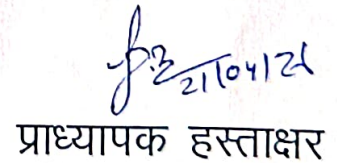 21/04/26
प्राध्यापक हस्ताक्षर